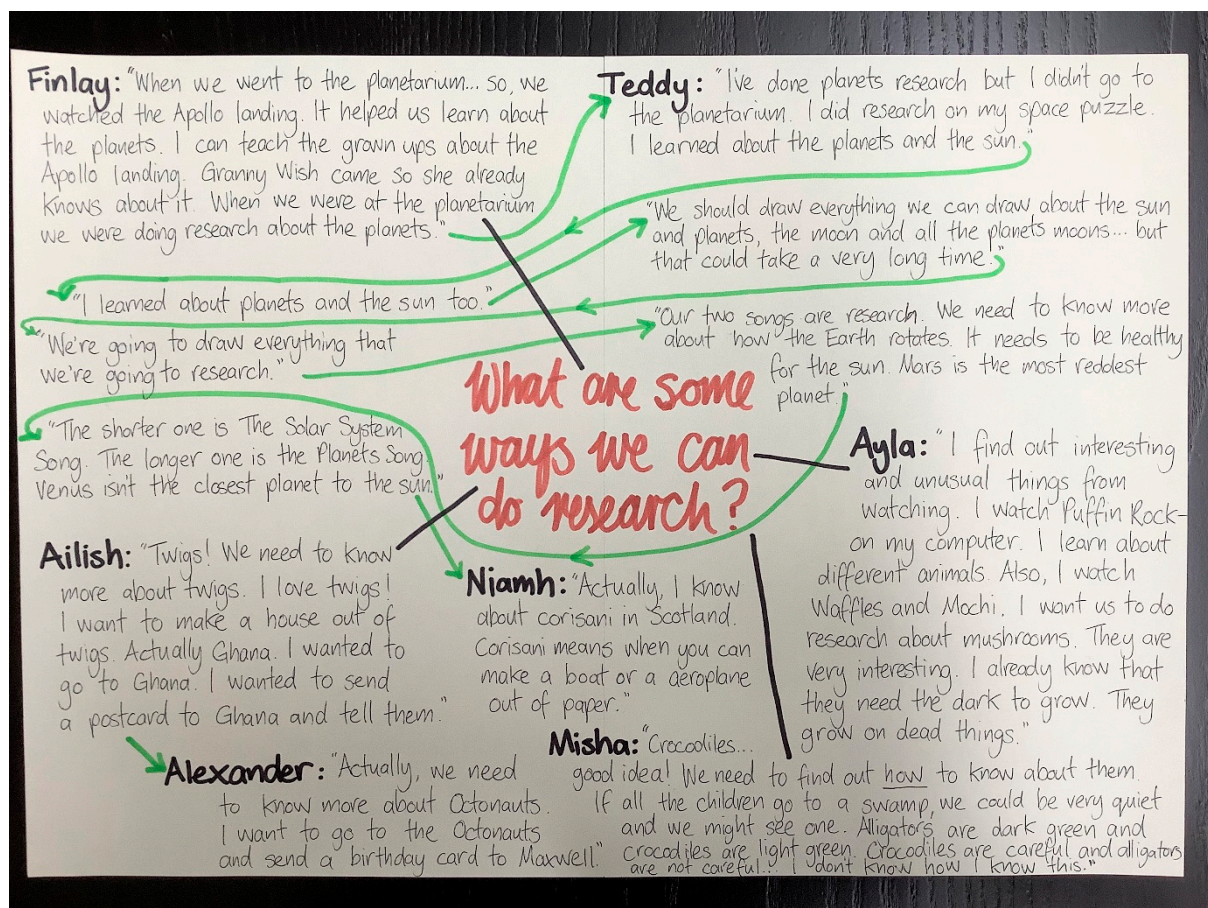 Finlay: "When we went to the planetarium... so, we
watched the Apollo landing. It helped us learn about
the planets. I can teach the grown ups about the
Apollo landing. Granny Wish came so she already
knows about it. When we were at the planetarium
we were doing research about the planets."
Teddy: "I've done planets research but I didn't go to
the planetarium. I did research on my space puzzle.
I learned about the planets and the sun."
"I learned about planets and the sun too."
"We should draw everything we can draw about the sun
and planets, the moon and all the planets moons... but
that could take a very long time."
"We're going to draw everything that
we're going to research."
"Our two songs are research. We need to know more
about how the Earth rotates. It needs to be healthy
for the sun. Mars is the most reddest
planet."
"The shorter one is The Solar System
Song. The longer one is the Planets Song.
Venus isn't the closest planet to the sun."
What are some
ways we can
do research?
Niamh: "Actually, I know
about corisani in Scotland.
Corisani means when you can
make a boat or a aeroplane
out of paper."
Ayla: "I find out interesting
and unusual things from
watching. I watch Puffin Rock-
on my computer. I learn about
different animals. Also, I watch
Waffles and Mochi. I want us to do
research about mushrooms. They are
very interesting. I already know that
they need the dark to grow. They
grow on dead things."
Ailish: "Twigs! We need to know
more about twigs. I love twigs!
I want to make a house out of
twigs. Actually Ghana. I wanted to
go to Ghana. I wanted to send
a postcard to Ghana and tell them."
Alexander: "Actually, we need
to know more about Octonauts.
I want to go to the Octonauts
and send a birthday card to Maxwell."
Misha: "Crocodiles...
good idea! We need to find out how to know about them.
If all the children go to a swamp, we could be very quiet
and we might see one. Alligators are dark green and
crocodiles are light green. Crocodiles are careful and alligators
are not careful... I don't know how I know this."